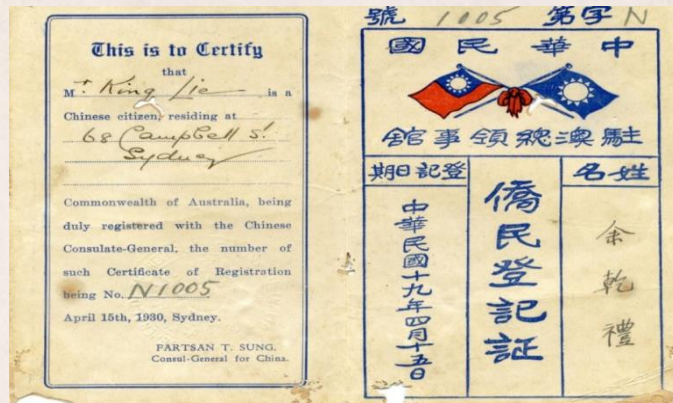 This is to Certify
that
Mr. King Lie is a
Chinese citizen, residing at
68 Campbell St
Sydney
Commonwealth of Australia, being
duly registered with the Chinese
Consulate-General, the number of
such Certificate of Registration
being No. N1005
April 15th, 1930, Sydney.
PARTSAN T. SUNG.
Consul-General for China.
N字第 1005 號
中華民國
駐澳總領事館
姓名
余乾禮
僑民登記証
登記日期
中華民國十九年四月十五日